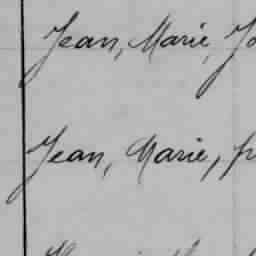 Jean, Marie, Jo
Jean, Marie, fr